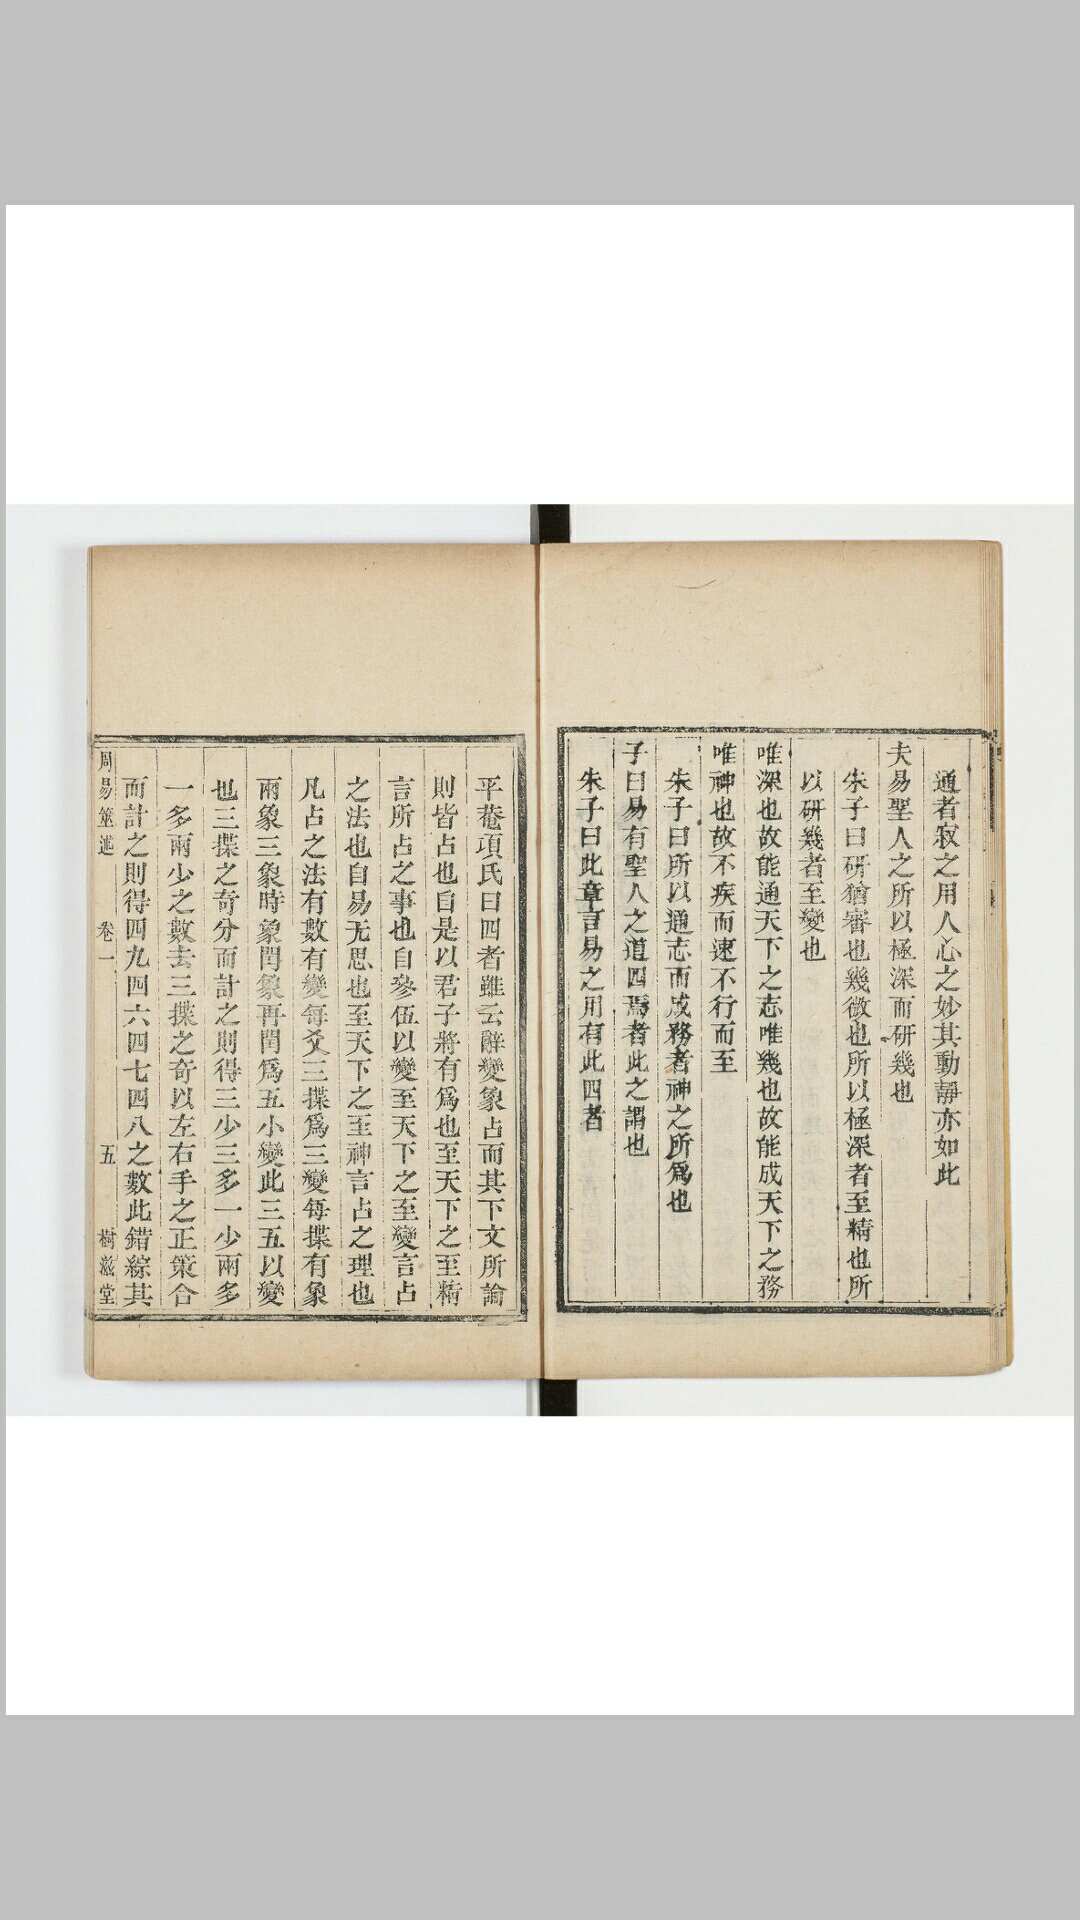 通者寂之用人心之妙其動靜亦如此
夫易聖人之所以極深而研幾也
朱子曰研猶審也幾微也所以極深者至精也所
以研幾者至變也
唯深也故能通天下之志唯幾也故能成天下之務
唯神也故不疾而速不行而至
朱子曰所以通志而成務者神之所爲也
子曰易有聖人之道四焉者此之謂也
朱子曰此章言易之用有此四者
平菴項氏曰四者雖云辭變象占而其下文所論
則皆占也自是以君子將有爲也至天下之至精
言所占之事也自參伍以變至天下之至變言占
之法也自易无思也至天下之至神言占之理也
凡占之法有數有變每爻三揲爲三變每揲有象
兩象三象時象閏象再閏爲五小變此三五以變
也三揲之奇分而計之則得三少三多一少兩多
一多兩少之數去三揲之奇以左右手之正策合
而計之則得四九四六四七四八之數此錯綜其
周易筮述 卷一 五 樹滋堂